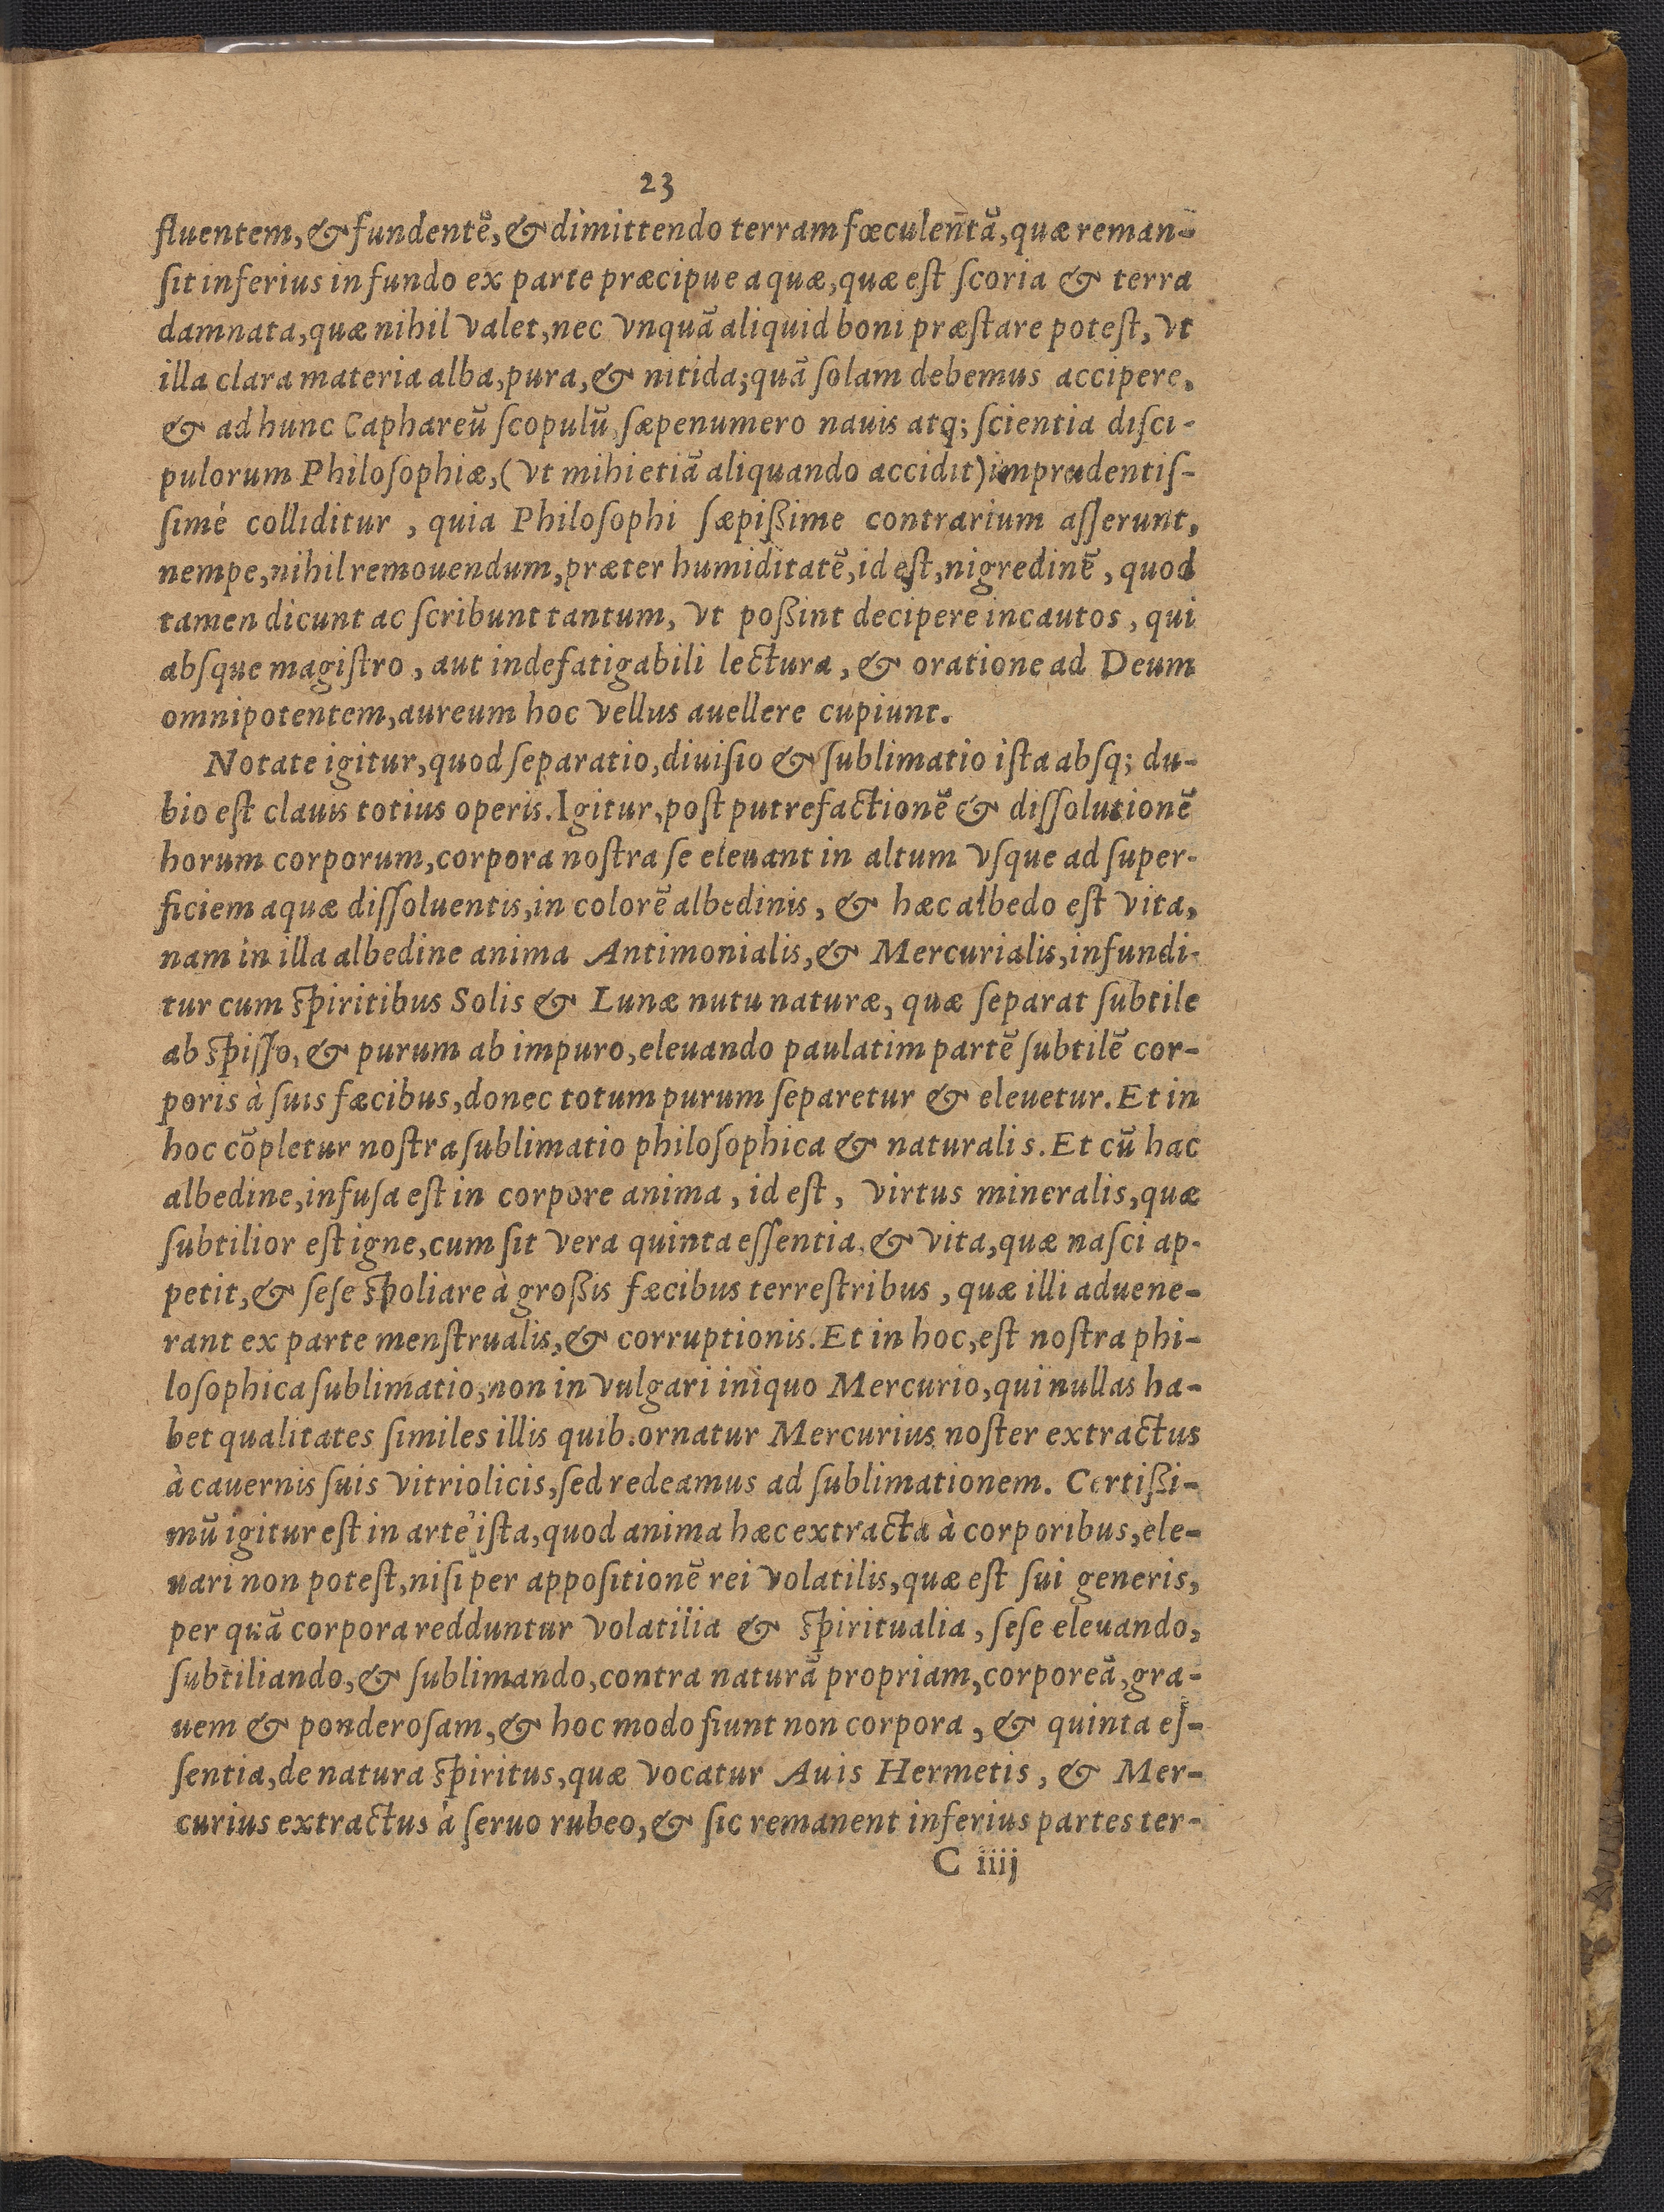 23
fluentem, & fundentẽ, & dimittendo terram fœculentã, quæ reman-
ſit inferius in fundo ex parte præcipue aquæ, quæ eſt ſcoria & terra
damnata, quæ nihil valet, nec vnquã aliquid boni præſtare poteſt, vt
illa clara materia alba, pura, & nitida; quã ſolam debemus accipere,
& ad hunc Caphareũ ſcopulũ, ſæpenumero nauis atq; ſcientia diſci-
pulorum Philoſophiæ, (vt mihi etiã aliquando accidit) imprudentiſ-
ſimé colliditur, quia Philoſophi ſæpißime contrarium aſſerunt,
nempe, nihil remouendum, præter humiditatẽ, id eſt, nigredinẽ, quod
tamen dicunt ac ſcribunt tantum, vt poßint decipere incautos, qui
abſque magiſtro, aut indefatigabili lectura, & oratione ad Deum
omnipotentem, aureum hoc vellus auellere cupiunt.
Notate igitur, quod ſeparatio, diuiſio & ſublimatio iſta abſq; du-
bio eſt clauis totius operis. Igitur, poſt putrefactionẽ & diſſolutionẽ
horum corporum, corpora noſtra ſe eleuant in altum vſque ad ſuper-
ficiem aquæ diſſoluentis, in colorẽ albedinis, & hæc albedo eſt vita,
nam in illa albedine anima Antimonialis, & Mercurialis, infundi-
tur cum ſpiritibus Solis & Lunæ nutu naturæ, quæ ſeparat ſubtile
ab ſpiſſo, & purum ab impuro, eleuando paulatim partẽ ſubtilẽ cor-
poris à ſuis fæcibus, donec totum purum ſeparetur & eleuetur. Et in
hoc cõpletur noſtra ſublimatio philoſophica & naturalis. Et cũ hac
albedine, infuſa eſt in corpore anima, id eſt, virtus mineralis, quæ
ſubtilior eſt igne, cum ſit vera quinta eſſentia, & vita, quæ naſci ap-
petit, & ſeſe ſpoliare à großis fæcibus terreſtribus, quæ illi aduene-
rant ex parte menſtrualis, & corruptionis. Et in hoc, eſt noſtra phi-
loſophica ſublimatio, non in vulgari iniquo Mercurio, qui nullas ha-
bet qualitates ſimiles illis quib. ornatur Mercurius noſter extractus
à cauernis ſuis vitriolicis, ſed redeamus ad ſublimationem. Certißi-
mũ igitur eſt in arte iſta, quod anima hæc extracta à corporibus, ele-
uari non poteſt, niſi per appoſitionẽ rei volatilis, quæ eſt ſui generis,
per quã corpora redduntur volatilia & ſpiritualia, ſeſe eleuando,
ſubtiliando, & ſublimando, contra naturã propriam, corporeã, gra-
uem & ponderoſam, & hoc modo fiunt non corpora, & quinta eſ-
ſentia, de natura ſpiritus, quæ vocatur Auis Hermetis, & Mer-
curius extractus à ſeruo rubeo, & ſic remanent inferius partes ter-
C iiij